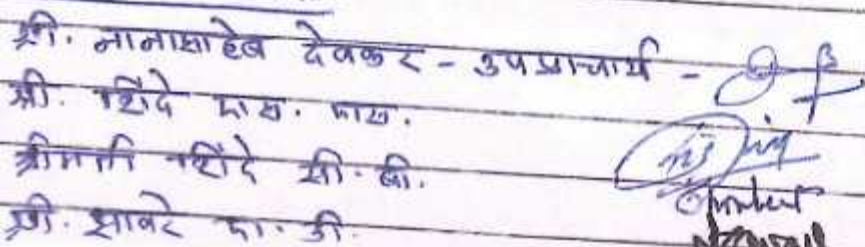 श्री. नानासाहेब देवकर - उपप्राचार्य -
श्री. शिंदे एस. एस.
श्रीमती शिंदे सी. बी.
श्री. झावरे ए. डी.